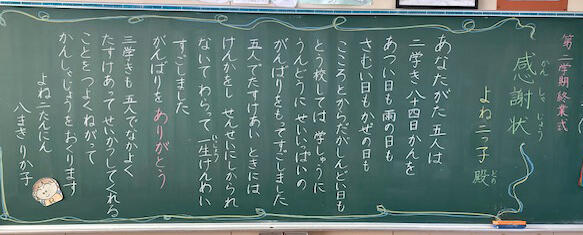 第二学期終業式
感謝状
かん しゃ じょう
よね二子殿
どの
あなたがた 五人は
二学き 八十四日かんを
あつい日も 雨の日も
さむい日も かぜの日も
こころとからだがしんどい日も
とう校しては 学しゅうに
うんどうに せいいっぱいの
がんばりをもってすごしました
五人でたすけあい ときには
けんかをし せんせいにしかられ
ないてわらって 一生けんめい
いっしょう
すごしました
がんばりを ありがとう
三学きも 五人でなかよく
たすけあって せいかつしてくれる
ことをつよくねがって
かんしゃじょうをおくります
よね二たんにん
八まき りか子